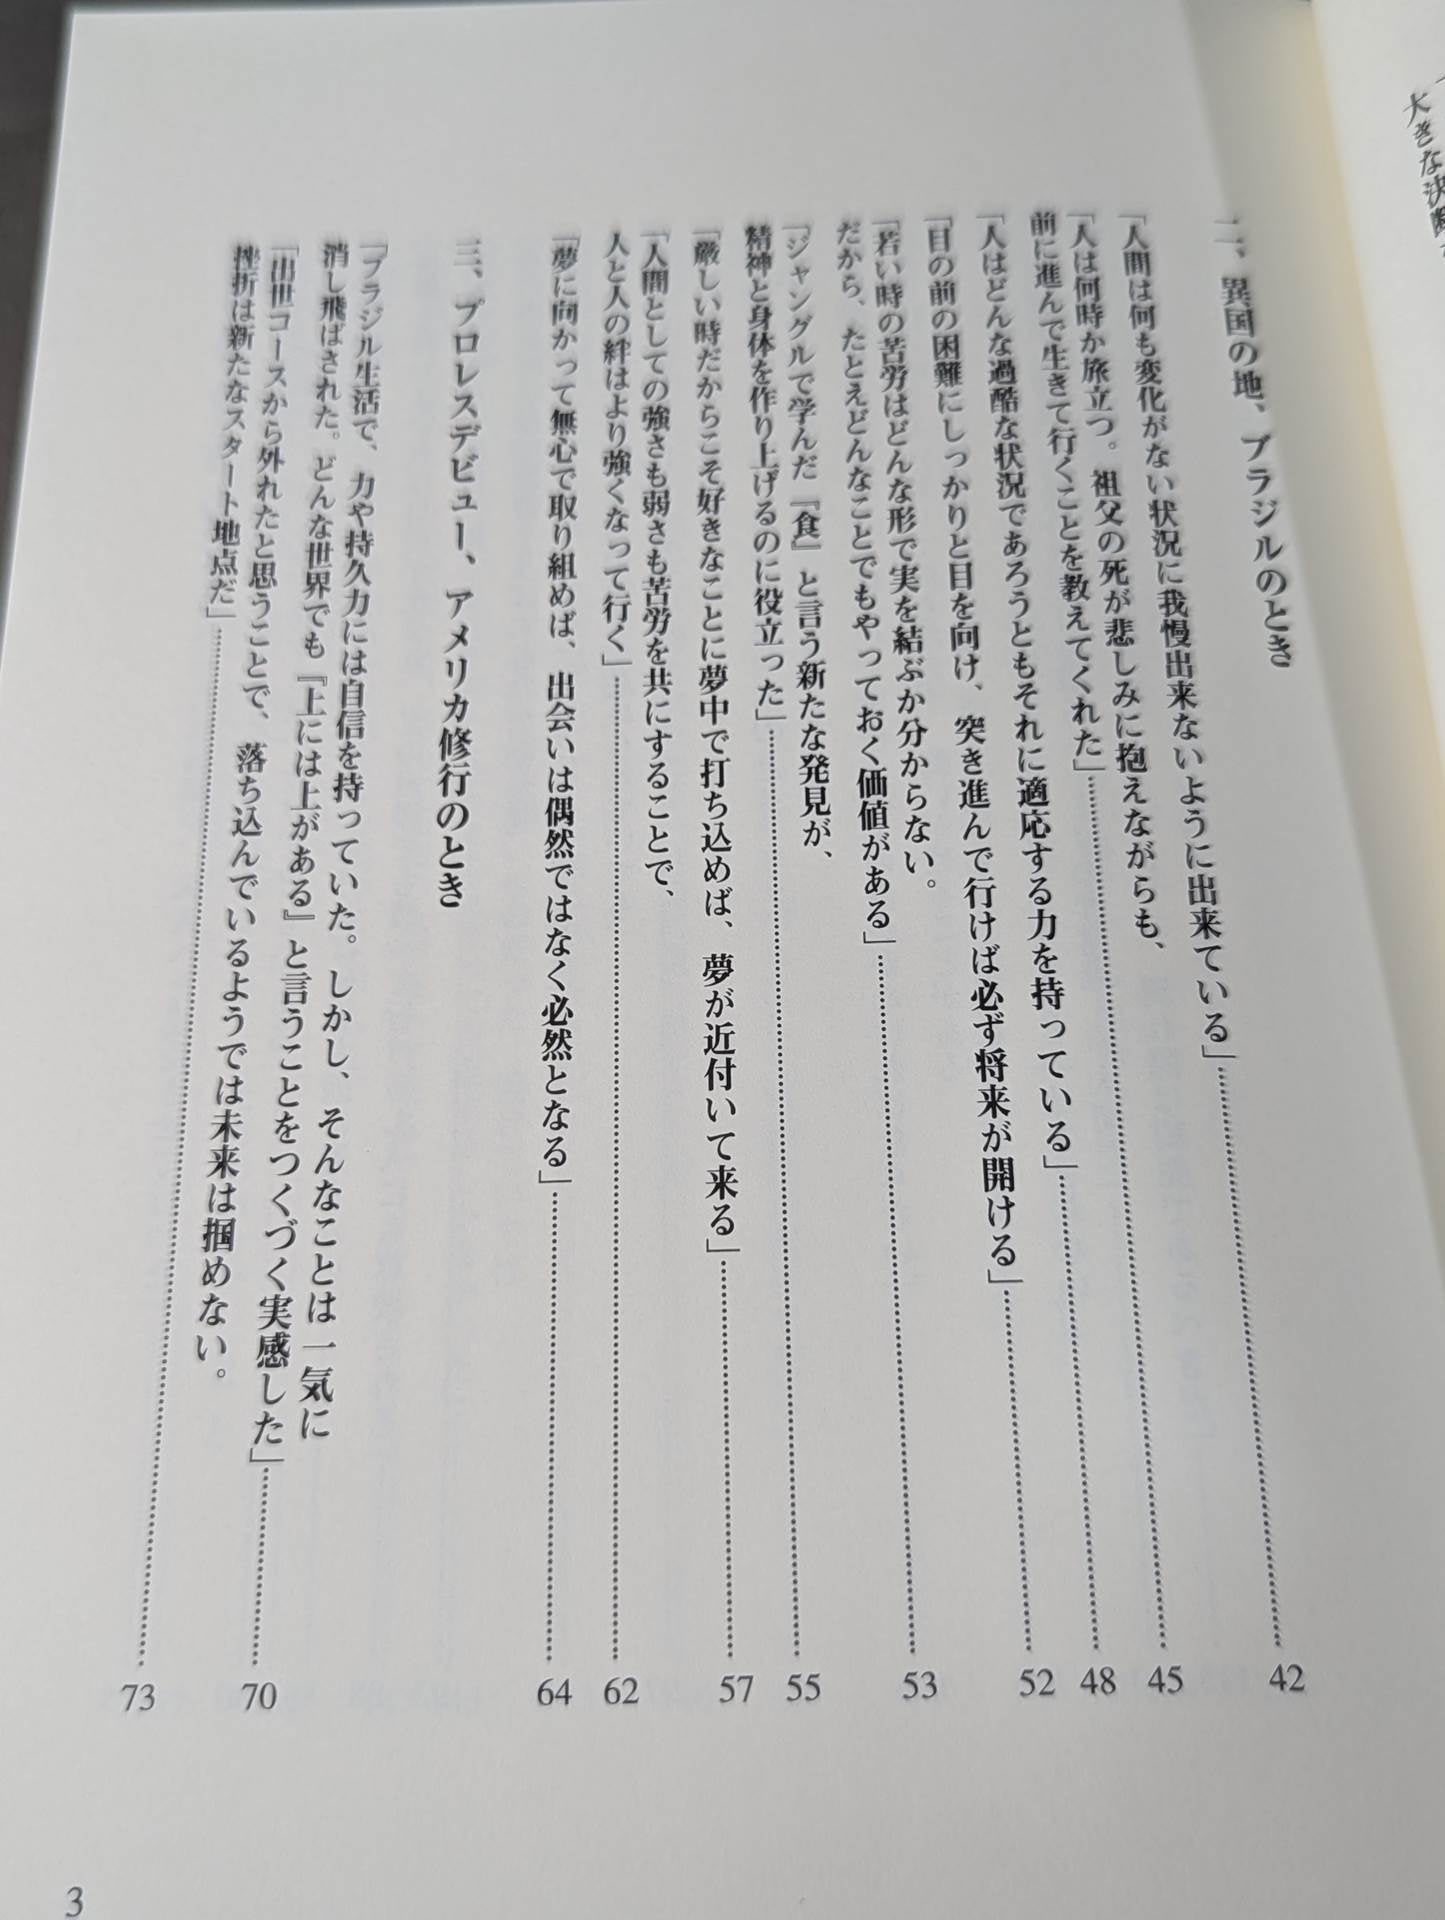 大きな決断
二、異国の地、ブラジルのとき
「人間は何も変化がない状況に我慢出来ないように出来ている」……42
「人は何時か旅立つ。祖父の死が悲しみに抱えながらも、
前に進んで生きて行くことを教えてくれた」……45
「人はどんな過酷な状況であろうともそれに適応する力を持っている」……48
「目の前の困難にしっかりと目を向け、突き進んで行けば必ず将来が開ける」……52
「若い時の苦労はどんな形で実を結ぶか分からない。
だから、たとえどんなことでもやっておく価値がある」……53
「ジャングルで学んだ『食』と言う新たな発見が、
精神と身体を作り上げるのに役立った」……55
「厳しい時だからこそ好きなことに夢中で打ち込めば、夢が近付いて来る」……57
「人間としての強さも弱さも苦労を共にすることで、
人と人の絆はより強くなって行く」……62
「夢に向かって無心で取り組めば、出会いは偶然ではなく必然となる」……64
三、プロレスデビュー、アメリカ修行のとき
「ブラジル生活で、力や持久力には自信を持っていた。しかし、そんなことは一気に
消し飛ばされた。どんな世界でも『上には上がある』と言うことをつくづく実感した」……70
「出世コースから外れたと思うことで、落ち込んでいるようでは未来は掴めない。
挫折は新たなスタート地点だ」……73
3